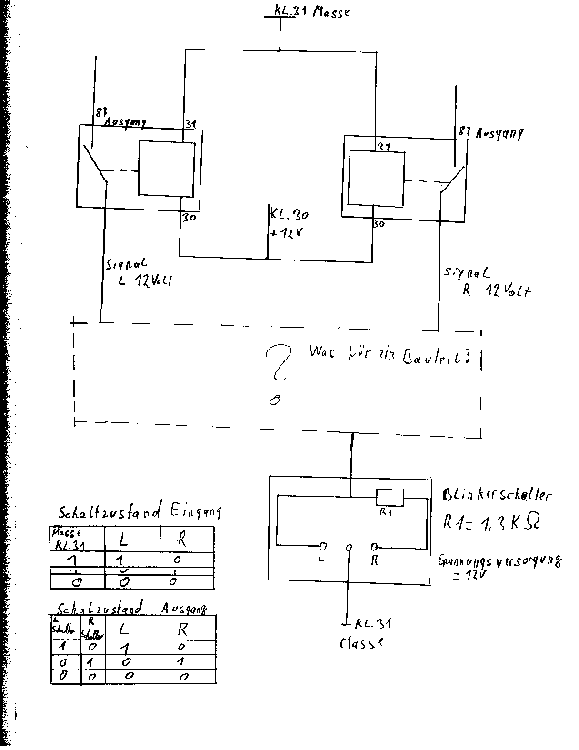 KL.31 Masse
87
Ausgang
31
30
31
30
87 Ausgang
KL.30
+12V
Signal
L 12Volt
Signal
R 12Volt
? Was für ein Bauteil?
Blinkerschalter
R1 = 1,3 KΩ
Spannungsversorgung
= 12V
R1
L
R
KL.31
Masse
Schaltzustand Eingang
Masse KL.31 L R
1 1 0
0 0 0
Schaltzustand Ausgang
L Schalter R Schalter L R
1 0 1 0
0 1 0 1
0 0 0 0